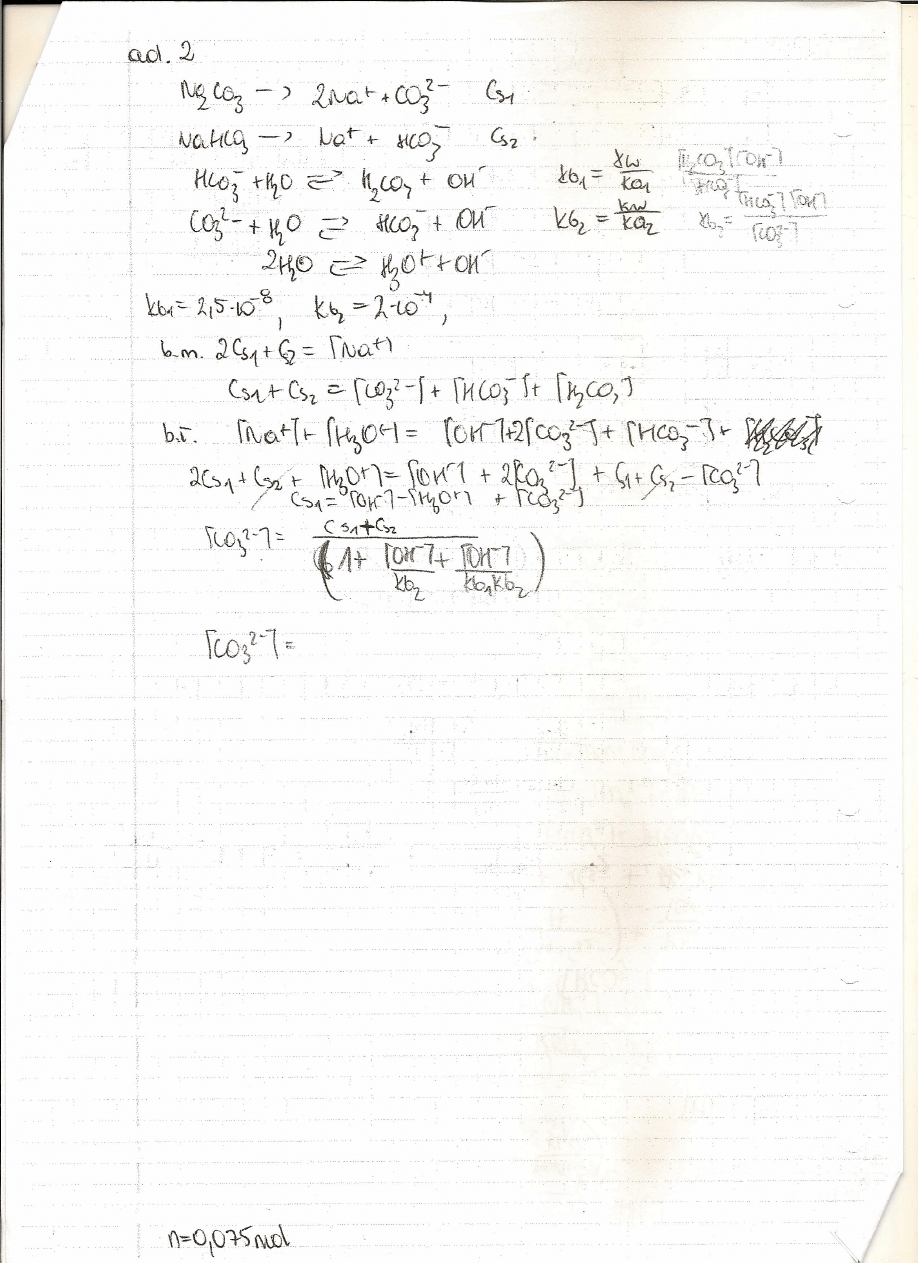 ad. 2
Na₂CO₃ → 2Na⁺ + CO₃²⁻ Cs₁
NaHCO₃ → Na⁺ + HCO₃⁻ Cs₂
HCO₃⁻ + H₂O ⇌ H₂CO₃ + OH⁻ Kb₁ = Kw/Ka₁ [H₂CO₃][OH⁻]/[HCO₃⁻]
CO₃²⁻ + H₂O ⇌ HCO₃⁻ + OH⁻ Kb₂ = Kw/Ka₂ Kb₂ = [HCO₃⁻][OH⁻]/[CO₃²⁻]
2H₂O ⇌ H₃O⁺ + OH⁻
Kb₁ = 2,5·10⁻⁸, Kb₂ = 2·10⁻⁴,
b.m. 2Cs₁ + C₂ = [Na⁺]
Cs₁ + Cs₂ = [CO₃²⁻] + [HCO₃⁻] + [H₂CO₃]
b.ł. [Na⁺] + [H₃O⁺] = [OH⁻] + 2[CO₃²⁻] + [HCO₃⁻] +
2Cs₁ + Cs₂ + [H₃O⁺] = [OH⁻] + 2[CO₃²⁻] + C₁ + Cs₂ − [CO₃²⁻]
Cs₁ = [OH⁻] − [H₃O⁺] + [CO₃²⁻]
[CO₃²⁻] = Cs₁ + Cs₂ / (1 + [OH⁻]/Kb₂ + [OH⁻]/Kb₁Kb₂)
[CO₃²⁻] =
n = 0,075 mol